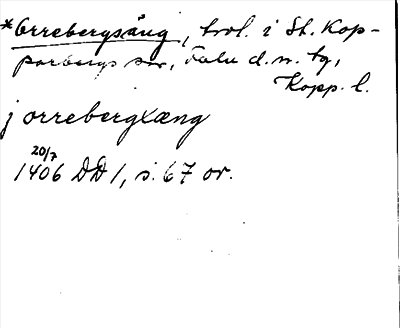 *Orrebergsäng, trol. i St. Kop-
parbergs sn, Falu d.n. tg,
Kopp. l.
j orrebergxæng
20/7
1406 DD 1, s. 67 or.